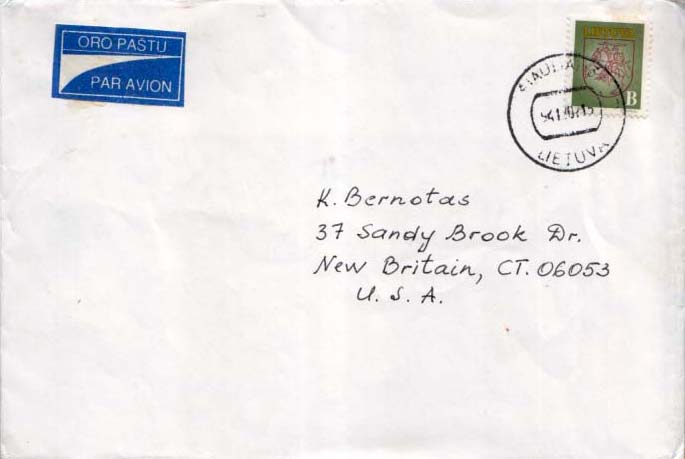 ORO PAŠTU
PAR AVION
LIETUVA
B
LIETUVA
K. Bernotas
37 Sandy Brook Dr.
New Britain, CT. 06053
U. S. A.